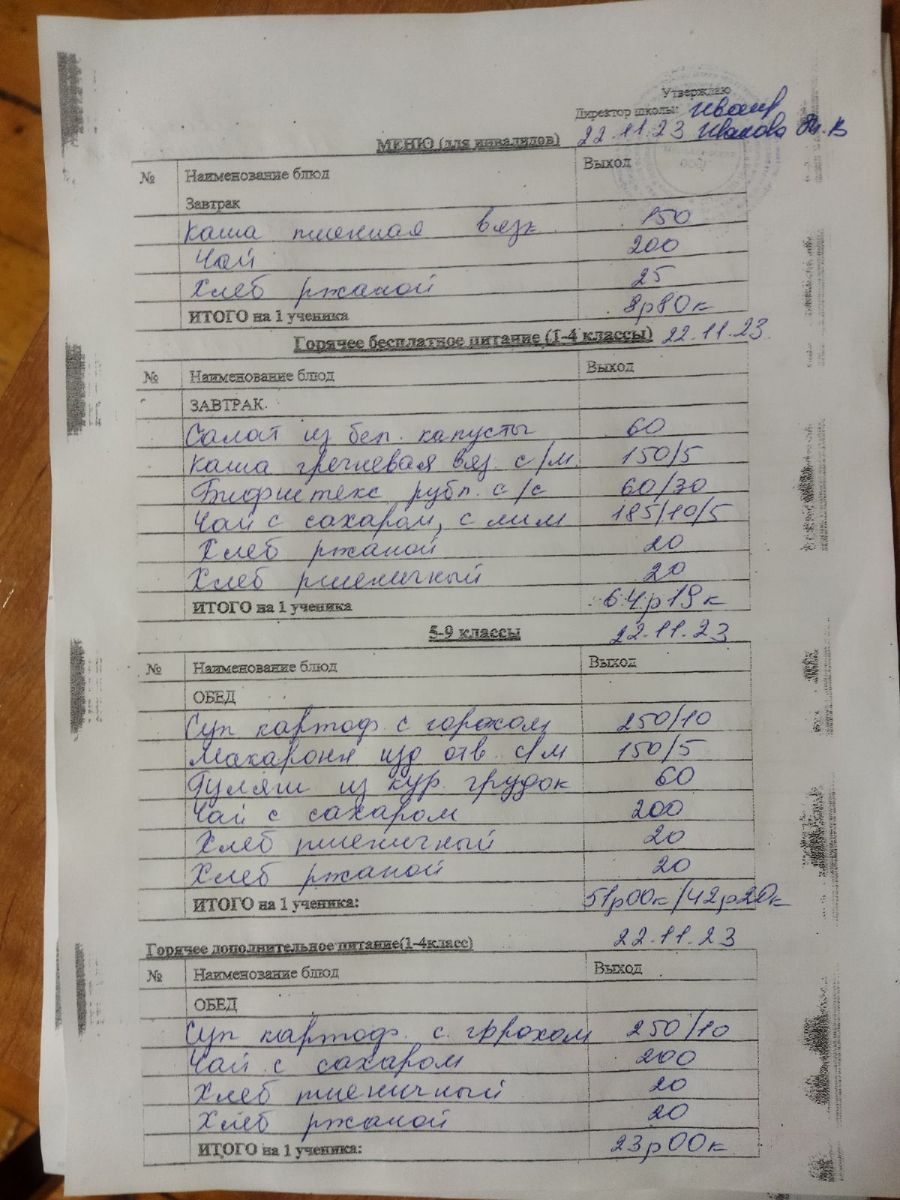 Утверждаю
Директор школы:
22.11.23 Иванова
МЕНЮ (для инвалидов)
№ Наименование блюд Выход
Завтрак
Каша пшенная вязк 150
Чай 200
Хлеб ржаной 25
ИТОГО на 1 ученика 8р80к
Горячее бесплатное питание (1-4 классы) 22.11.23
№ Наименование блюд Выход
ЗАВТРАК.
Салат из бел. капусты 60
Каша гречневая вяз. с/м. 150/5
Бифштекс рубл. с/с 60/30
Чай с сахаром, с лим 185/10/5
Хлеб ржаной 20
Хлеб пшеничный 20
ИТОГО на 1 ученика 64р19к
5-9 классы 22.11.23
№ Наименование блюд Выход
ОБЕД
Суп картоф. с горохом 250/10
Макарони изд отв. с/м 150/5
Гуляш из кур. грудок 60
Чай с сахаром 200
Хлеб пшеничный 20
Хлеб ржаной 20
ИТОГО на 1 ученика: 51р00к/42р20к
Горячее дополнительное питание(1-4класс) 22.11.23
№ Наименование блюд Выход
ОБЕД
Суп картоф. с. горохом 250/10
Чай с сахаром 200
Хлеб пшеничный 20
Хлеб ржаной 20
ИТОГО на 1 ученика: 23р00к